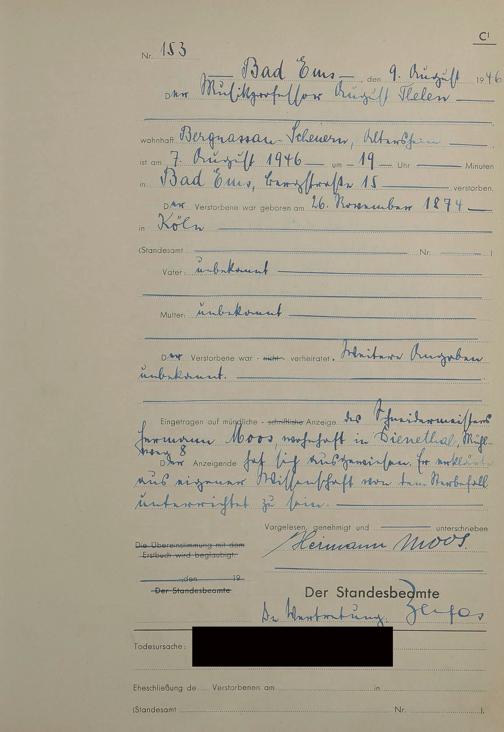 C1
Nr. 153
Bad Ems, den 9. August 1946
Der Musikprofessor August Thelen
wohnhaft Bergnassau-Scheuern, Altersheim
ist am 7. August 1946 um 19 Uhr Minuten
in Bad Ems, Bergstraße 15 verstorben.
Der Verstorbene war geboren am 26. November 1874
in Köln
(Standesamt Nr. )
Vater: unbekannt
Mutter: unbekannt
Der Verstorbene war - nicht - verheiratet. Weitere Angaben
unbekannt.
Eingetragen auf mündliche - schriftliche Anzeige des Schneidermeisters
Hermann Moos, wohnhaft in Dienethal, Mühl-
weg 8
Der Anzeigende hat sich ausgewiesen. Er erklärte
aus eigener Wissenschaft von dem Sterbefall
unterrichtet zu sein.
Vorgelesen, genehmigt und unterschrieben
Hermann Moos.
Die Übereinstimmung mit dem
Erstbuch wird beglaubigt.
, den 19
Der Standesbeamte
Der Standesbeamte
In Vertretung.
Todesursache:
Eheschließung de Verstorbenen am in
(Standesamt Nr. ).